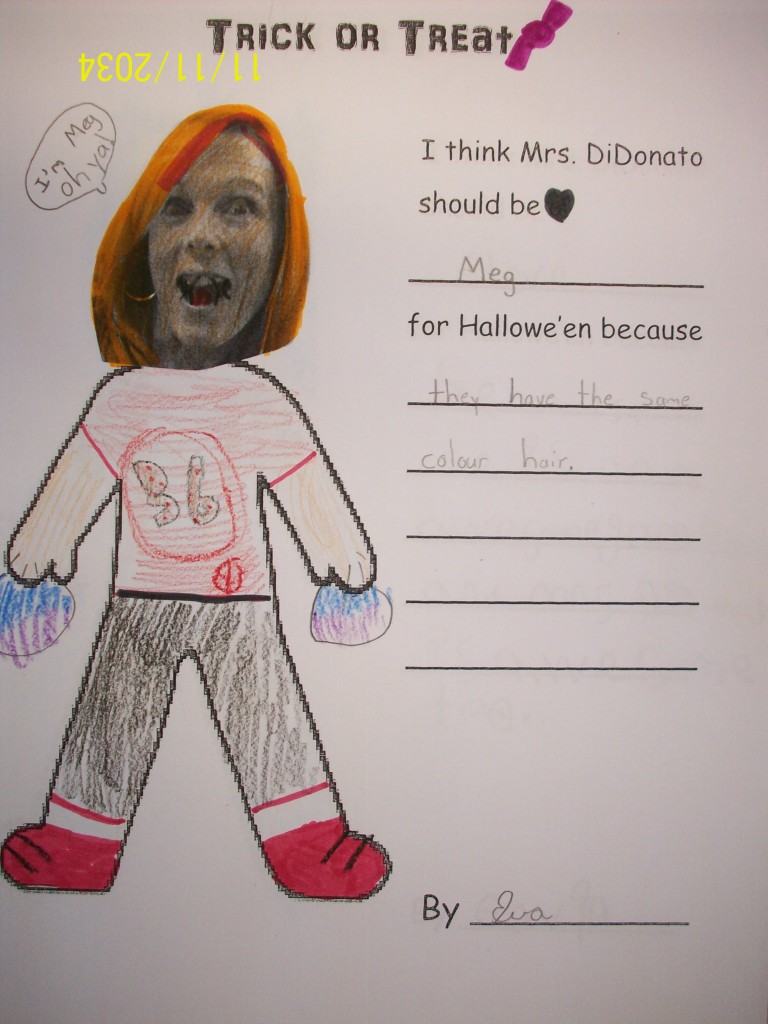 Trick or Treat
11/11/2034
I'm Meg
oh ya!
I think Mrs. DiDonato
should be
Meg
for Hallowe'en because
they have the same
colour hair.
36
By Eva